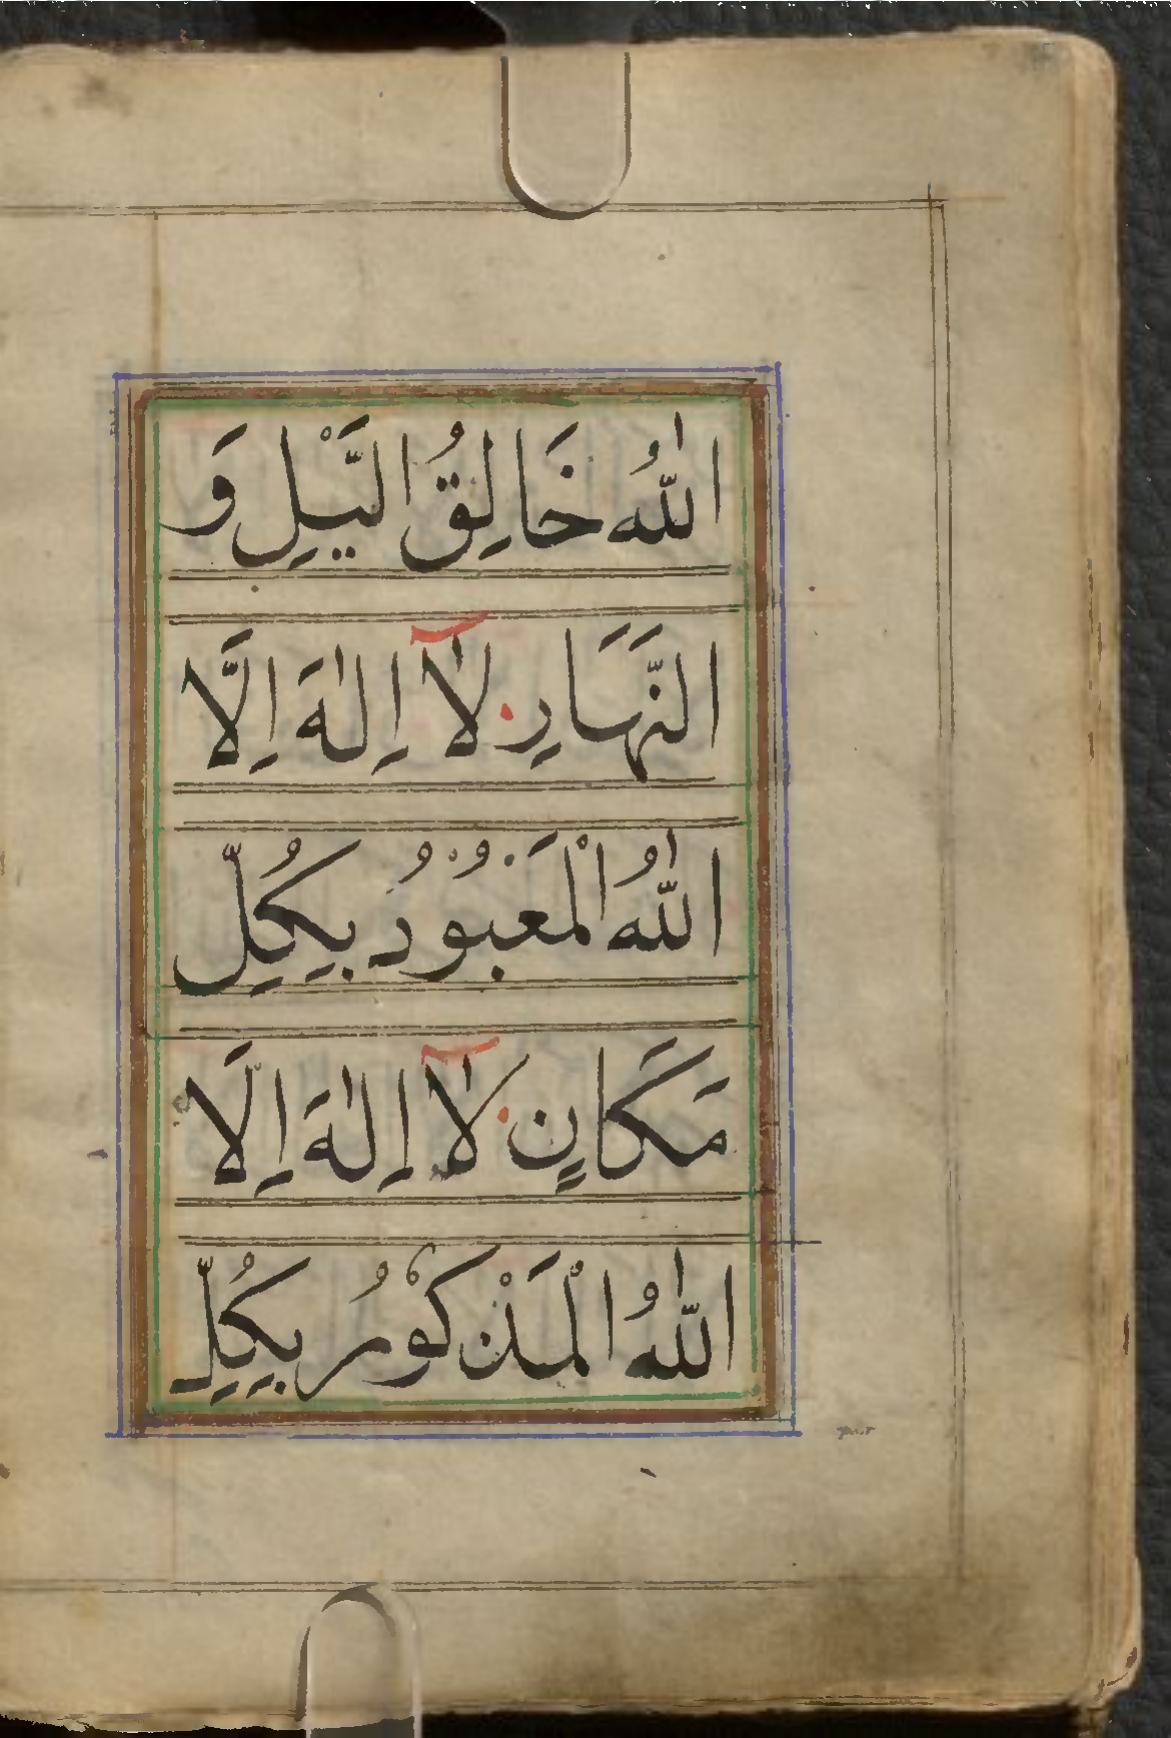 اللّٰهُ خَالِقُ الَّيْلِ وَ
النَّهَارِ لَآ اِلٰهَ اِلَّا
اللّٰهُ الْمَعْبُوْدُ بِكُلِّ
مَكَانٍ لَآ اِلٰهَ اِلَّا
اللّٰهُ الْمَذْكُوْرُ بِكُلِّ